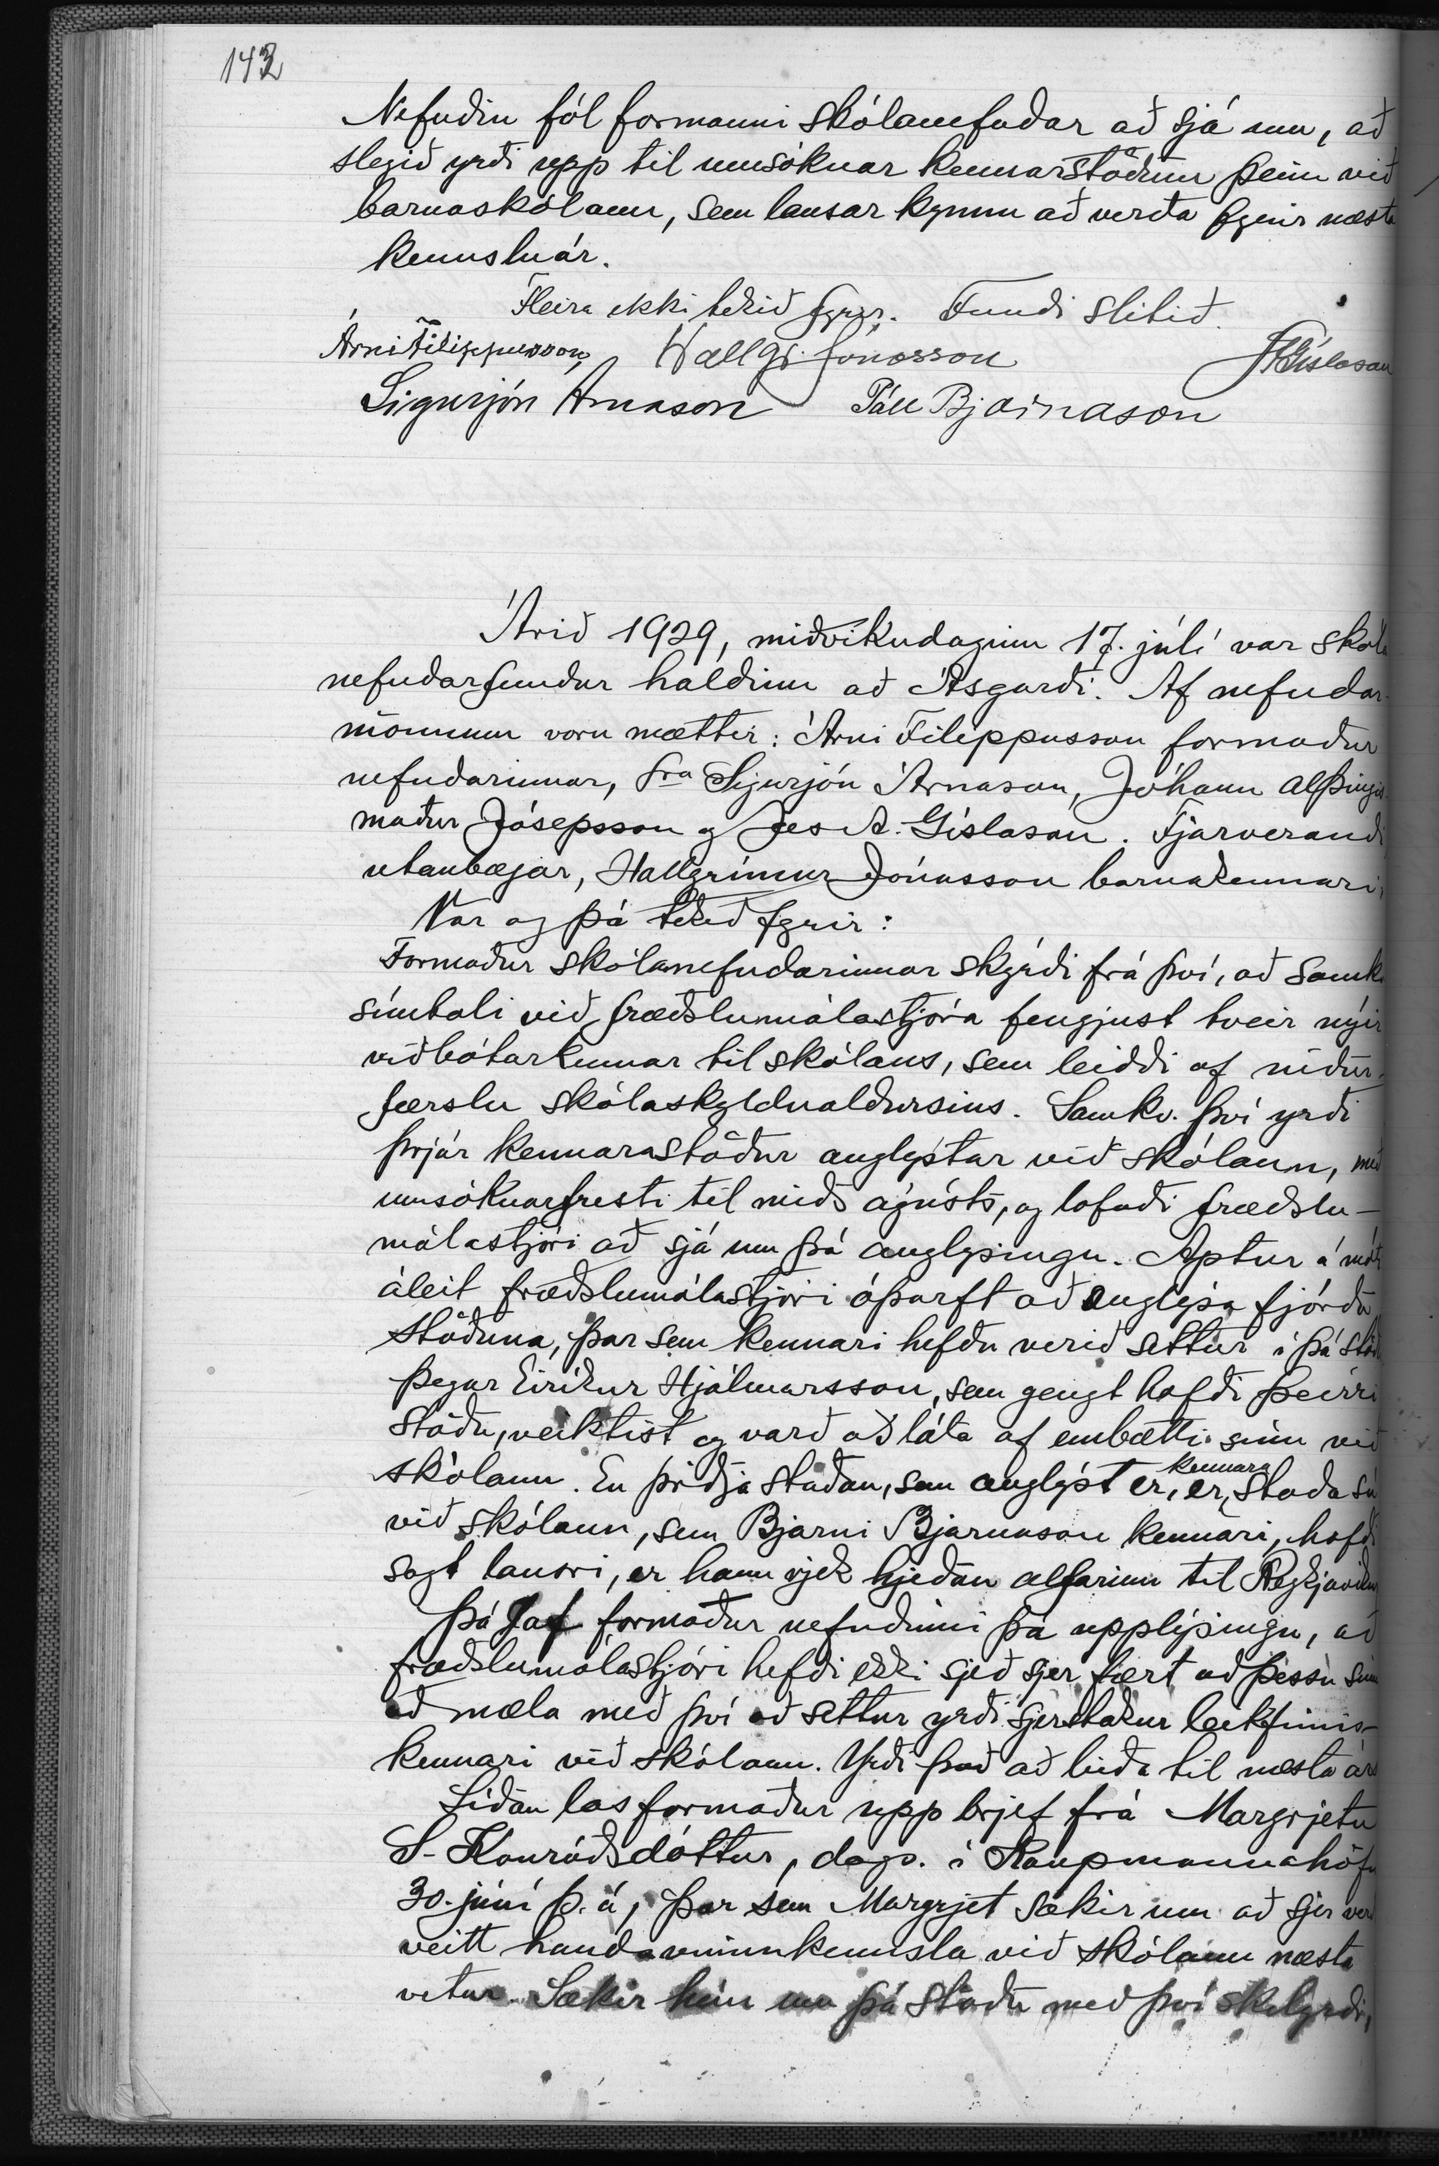 142
Nefndin fól formanni skólanefndar að sjá um, að
slegið yrði upp til umsóknar kennarastöðum þeim við
barnaskólann, sem lausar kynnu að verða fyrir næsta
kennsluár.
Fleira ekki tekið fyrir. Fundi slitið.
Árni Filippusson, Hallgr. Jónasson JAGíslason
Sigurjón Árnason Páll Bjarnason
Árið 1929, miðvikudaginn 17. júlí var skóla
nefndarfundur haldinn að Ásgarði. Af nefndar-
mönnum voru mættir: Árni Filippusson formaður
nefndarinnar, sra Sigurjón Árnason, Jóhann alþingis
maður Jósepsson og Jes A. Gíslason. Fjarverandi
utanbæjar, Hallgrímur Jónasson barnakennari,
Var og þá tekið fyrir:
Formaður skólanefndarinnar skýrði frá því, að samkv
símtali við fræðslumálastjóra fengjust tveir nýir
viðbótarkennar til skólans, sem leiddi af niður-
færslu skólaskyldualdursins. Samkv. því yrði
þrjár kennarastöður auglýstar við skólann, með
umsóknarfresti til miðs ágústs, og lofaði fræðslu-
málastjóri að sjá um þá auglýsingu. Aptur á móti
áleit fræðslumálastjóri óþarft að auglýsa fjórðu
stöðuna, þar sem kennari hefðu verið settur í þá stöðu
þegar Eiríkur Hjálmarsson, sem gengt hafði þeirri
stöðu, veiktist og varð að láta af embætti sínu við
skólann. En þriðja staðan, sem auglýst er, er kennara staða sú
við skólann, sem Bjarni Bjarnason kennari, hafði
sagt lausri, er hann vjek hjeðan alfarinn til Reykjavíkur
Þá gaf formaður nefndinni þá upplýsingu, að
fræðslumálastjóri hefði ekki sjeð sjer fært að þessu sinni
að mæla með því að settur yrði sjerstakur leikfimis-
kennari við skólann. Yrði það að bíða til næsta árs
Síðan las formaður upp brjef frá Margrjetu
S. Konráðsdóttur, dags. í Kaupmannahöfn
30. júní þ. á, þar sem Margrjet sækir um að sjer verði
veitt handavinnukennsla við skólann næsta
vetur. Sækir hún um þá stöðu með því skilyrði,